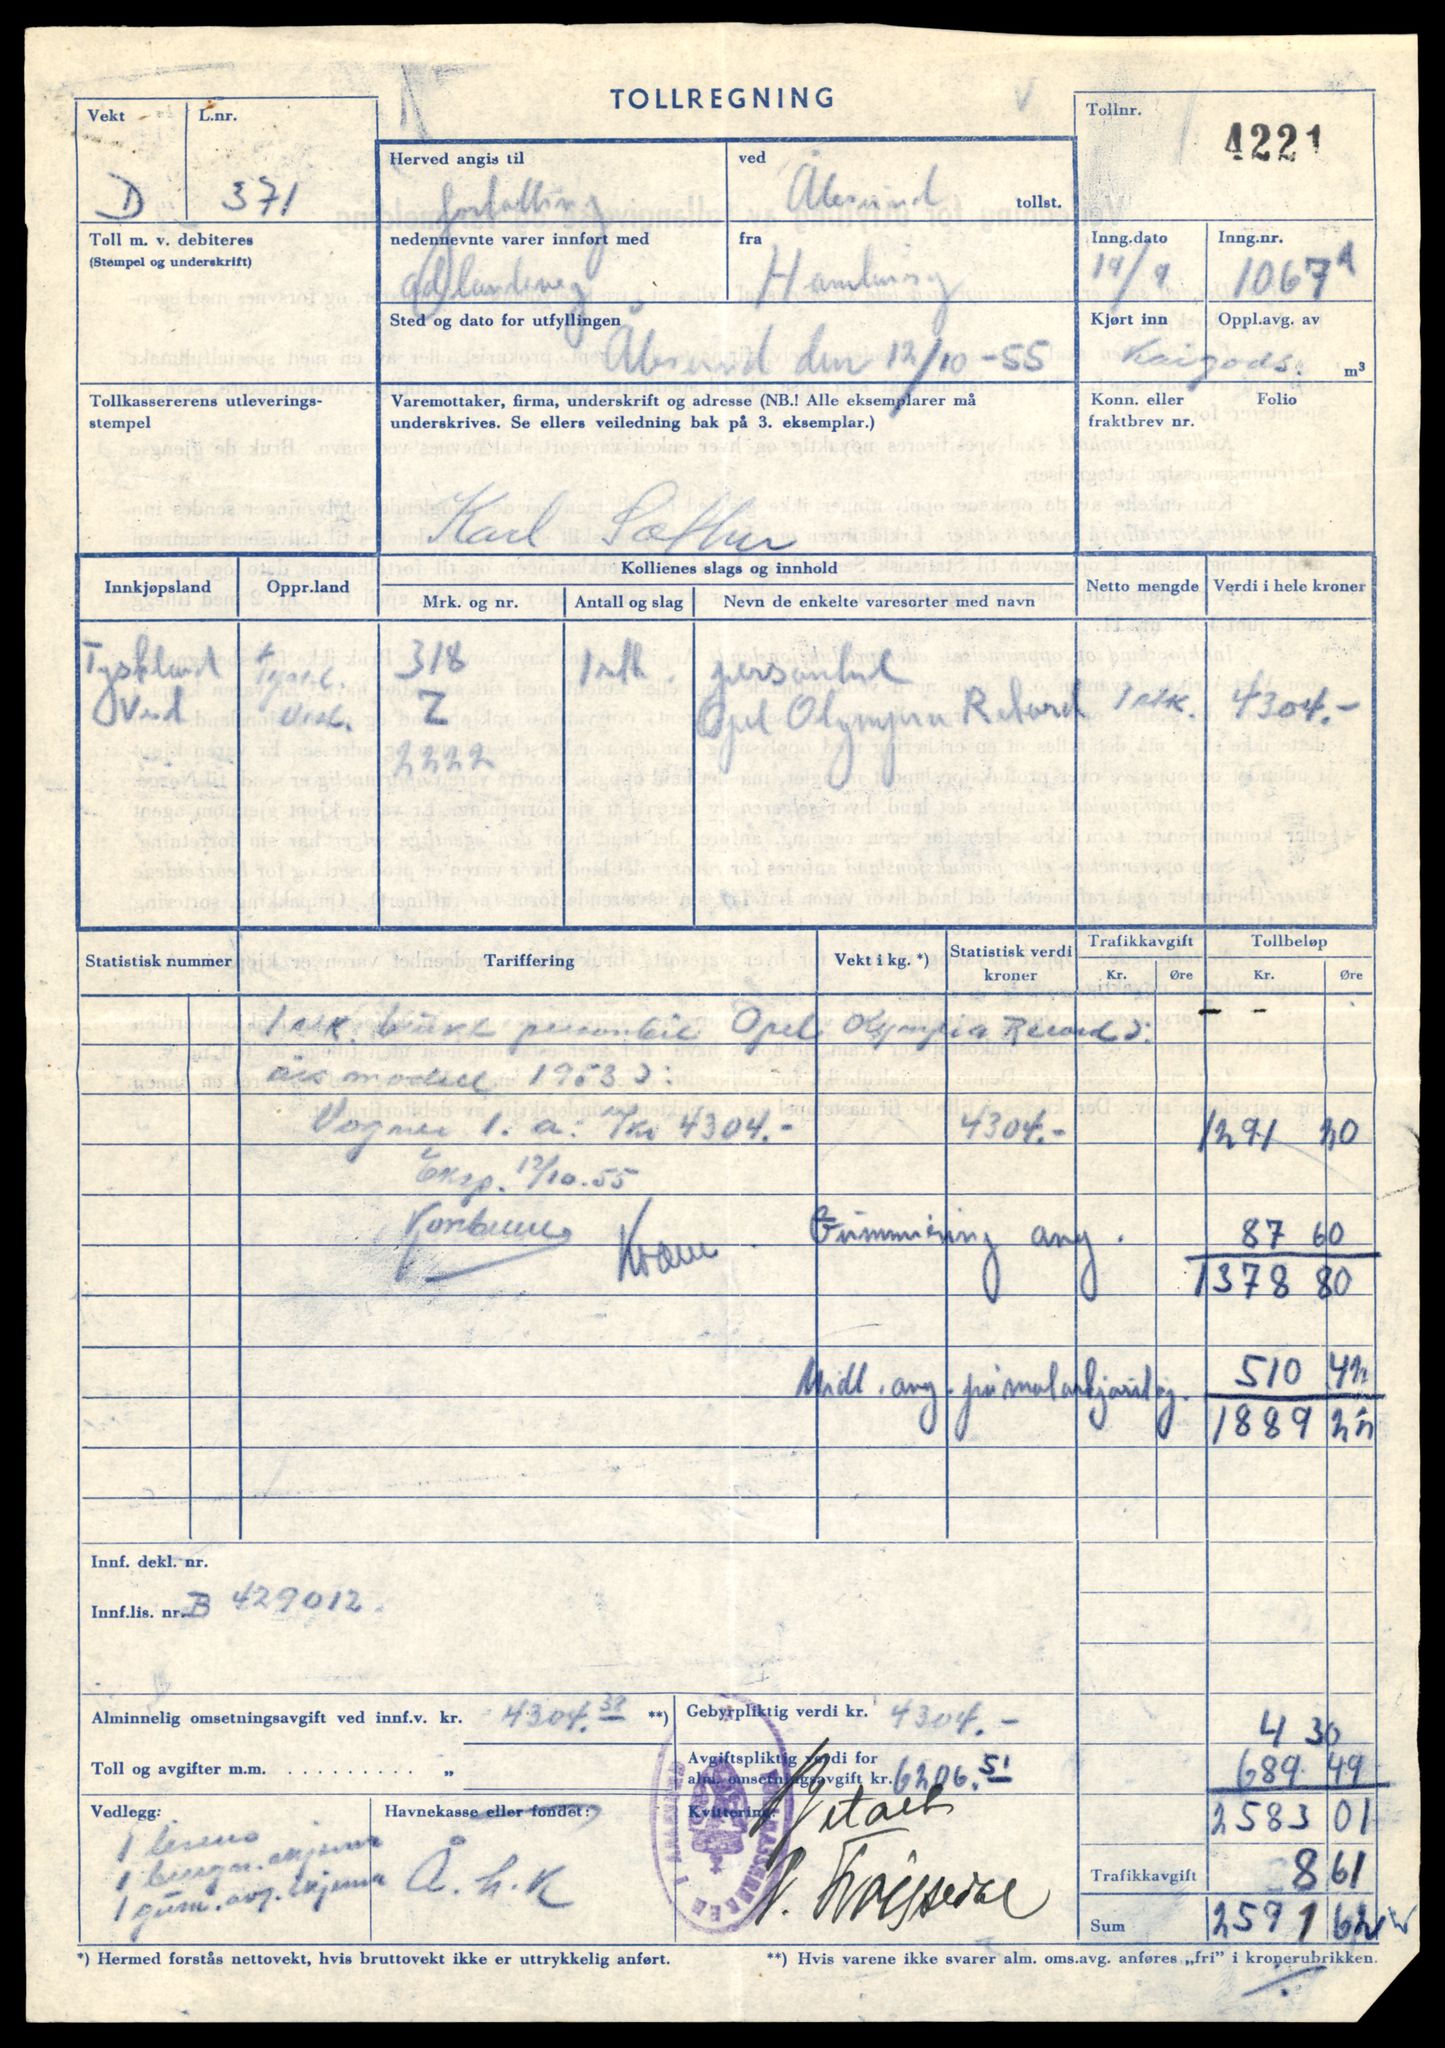 TOLLREGNING
Vekt
L.nr.
D
371
Tollnr.
4221
Herved angis til
ved
fortolling
Ålesund
tollst.
Toll m. v. debiteres
(Stempel og underskrift)
nedennevnte varer innført med
fra
Hamburg
Inng.dato
Inng.nr.
19/9
1067
Sted og dato for utfyllingen
Ålesund den 12/10 - 55
Kjørt inn
Oppl.avg. av
Kaigods.
m³
Tollkassererens utleverings-
stempel
Varemottaker, firma, underskrift og adresse (NB.! Alle eksemplarer må
underskrives. Se ellers veiledning bak på 3. eksemplar.)
Konn. eller
fraktbrev nr.
Folio
Karl Sæther
Innkjøpsland
Oppr.land
Kollienes slags og innhold
Mrk. og nr.
Antall og slag
Nevn de enkelte varesorter med navn
Netto mengde
Verdi i hele kroner
Tyskland
Tyskl.
318
1 stk.
personbil
Vest
Vest.
Z
Opel Olympia Rekord
1 stk.
4304.-
2222
Statistisk nummer
Tariffering
Vekt i kg. *)
Statistisk verdi
kroner
Trafikkavgift
Kr. Øre
Tollbeløp
Kr. Øre
1 stk. brukt personbil Opel Olympia Record
modell 1953
Vogner 1. a. Kr 4304.-
4304.-
1291 20
Eksp. 12/10.55
Gummiering avg.
87 60
1378 80
Midl. avg. på motorkjøretøy.
510 42
1889 22
Innf. dekl. nr.
Innf.lis. nr. B 429012.
Alminnelig omsetningsavgift ved innf.v. kr. 4304.38 **)
Gebyrpliktig verdi kr. 4304.-
4 30
Toll og avgifter m.m. . . . . . . . . . „
Avgiftspliktig verdi for
alm. omsetningsavgift kr. 6206.51
689 49
Vedlegg:
Havnekasse eller fondet:
Kvittering:
2583 01
1 lisens
1 gum. avg. skjema
Å. h. K
Betalt
Trafikkavgift
8 61
Sum
2591 62
*) Hermed forstås nettovekt, hvis bruttovekt ikke er uttrykkelig anført.
**) Hvis varene ikke svarer alm. oms.avg. anføres „fri” i kronerubrikken.